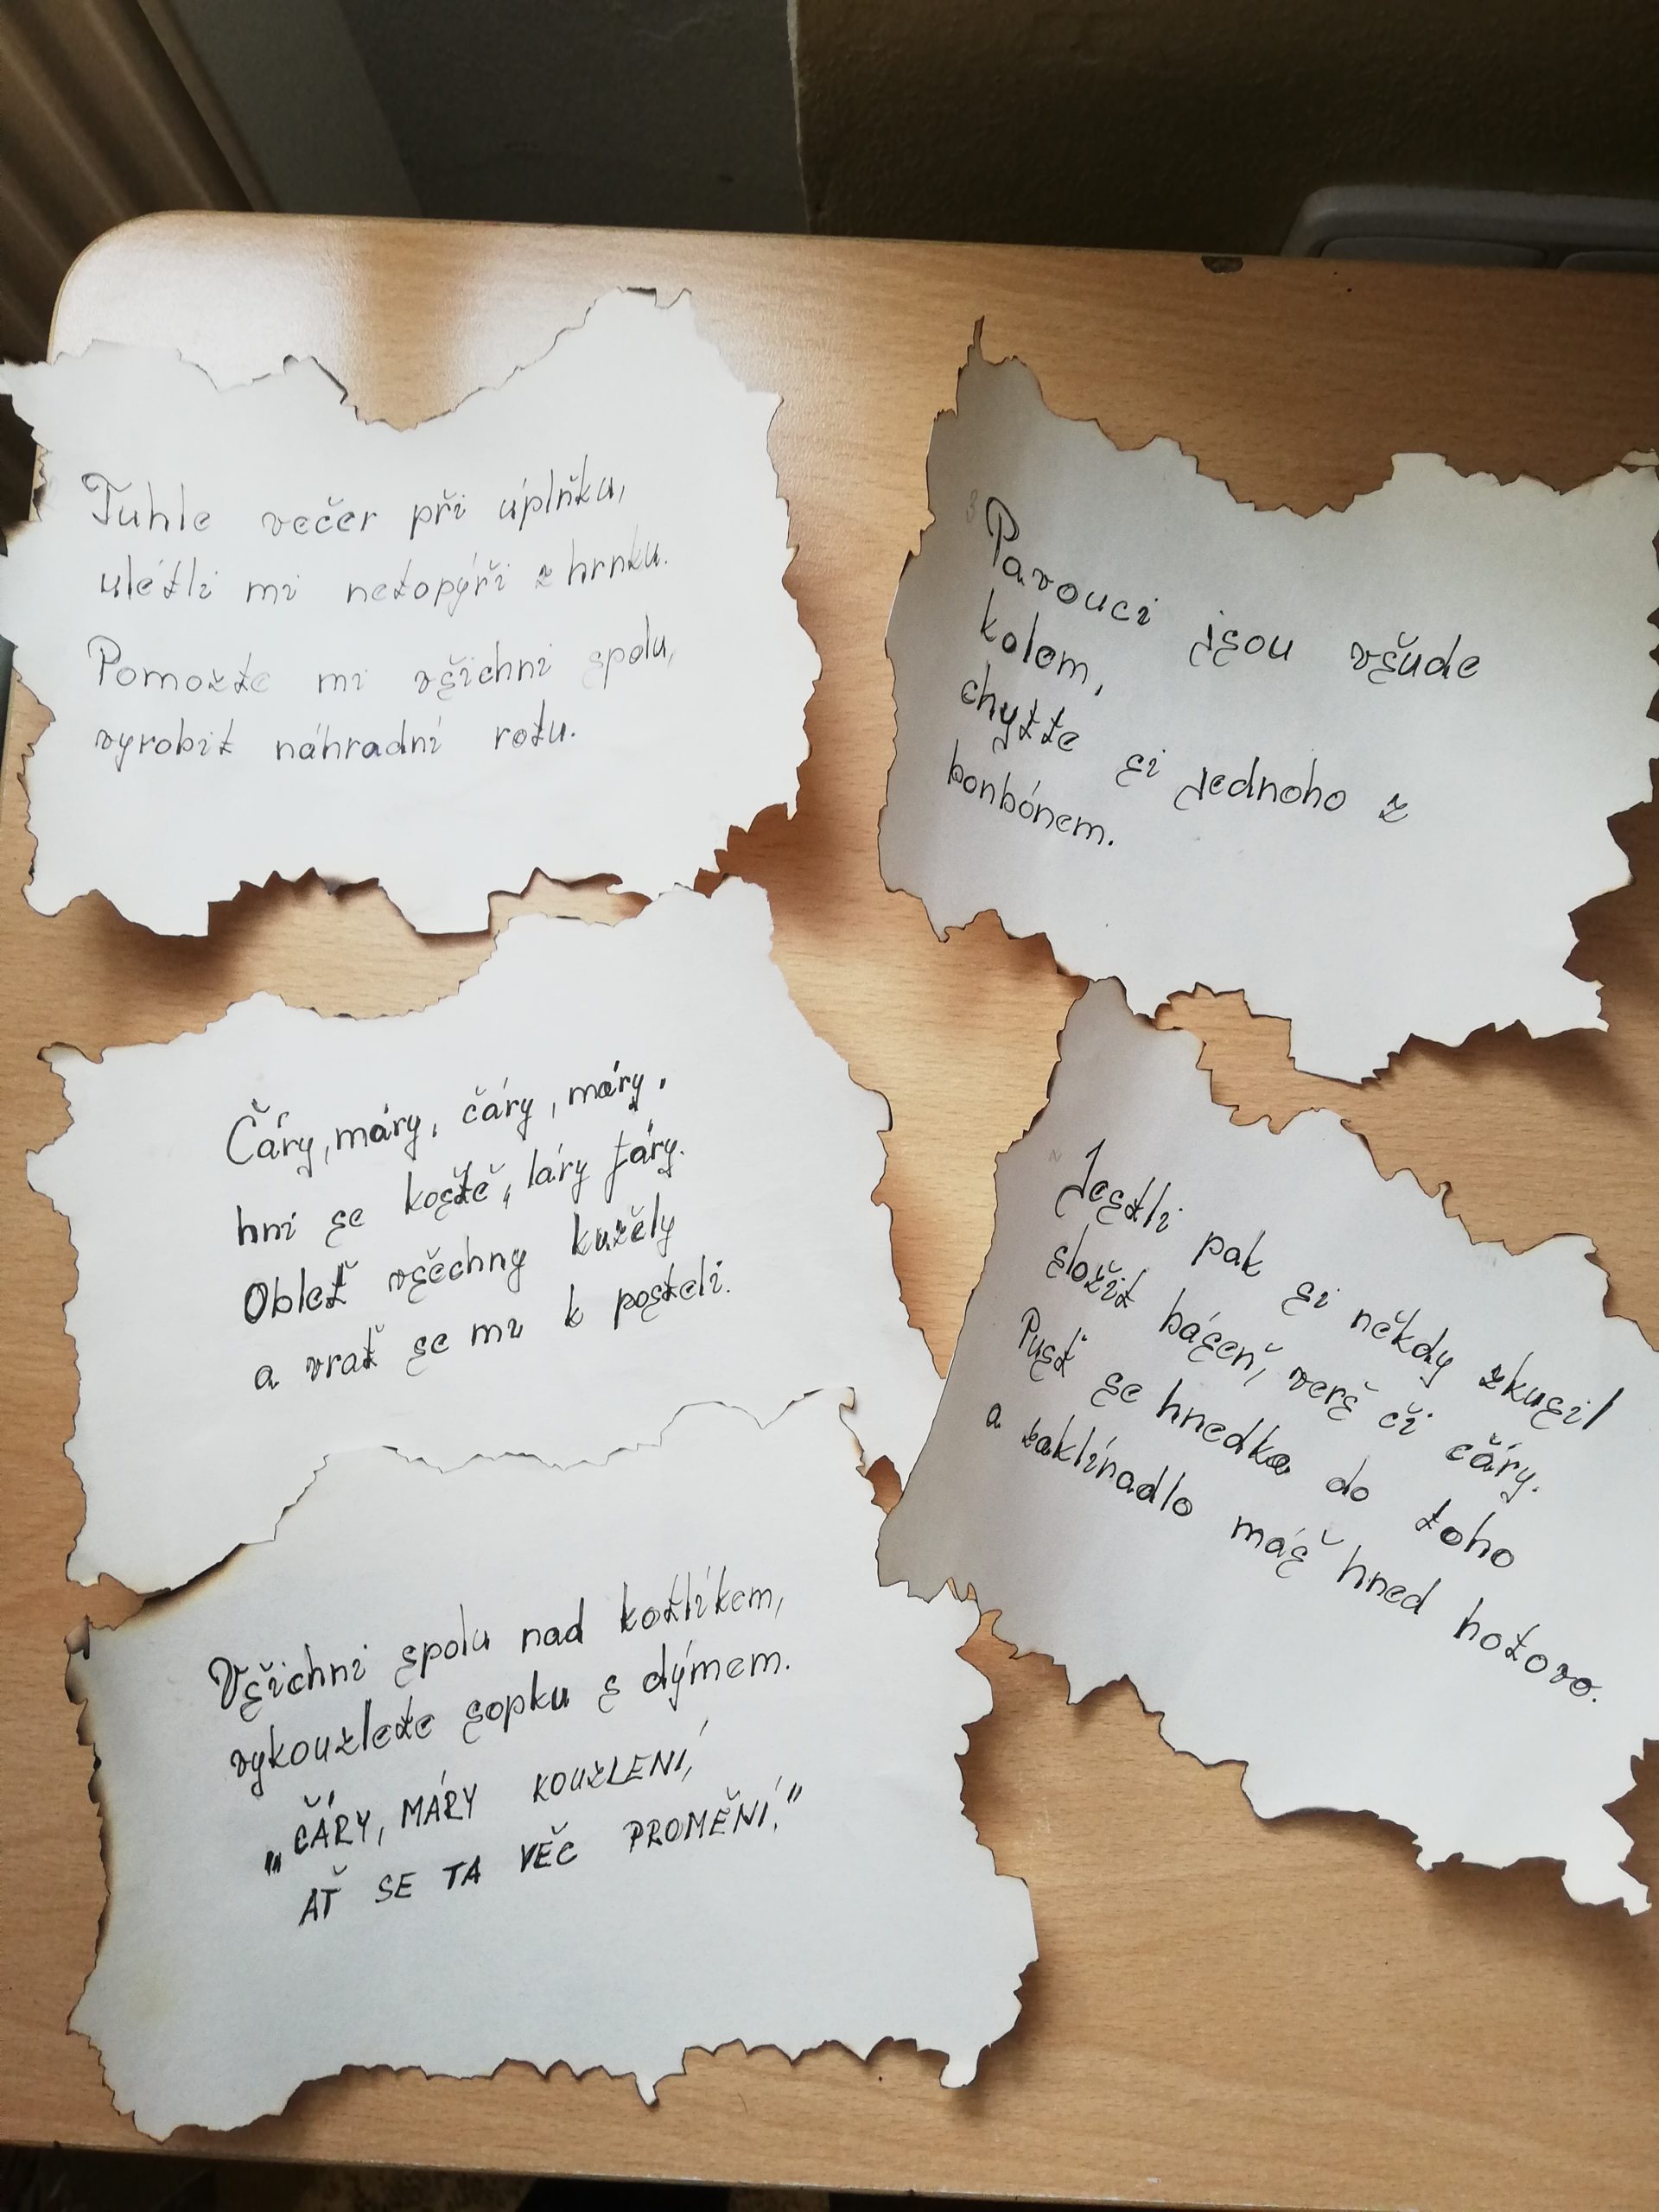 Tuhle večer při úplňku,
ulétli mi netopýři z hrnku.
Pomožte mi všichni spolu,
vyrobit náhradní rotu.
3
Pavouci jsou všude
kolem,
chytte si jednoho z
bonbónem.
Čáry, máry, čáry, máry.
hni se koště, láry fáry.
Obleť všechny kužely
a vrať se mi k posteli.
Jestli pak si někdy zkusil
složit báseň, verš či čáry.
Pusť se hnedka do toho
a zaklínadlo máš hned hotovo.
Všichni spolu nad kotlíkem,
vykouzlete sopku s dýmem.
„ČÁRY, MÁRY KOUZLENÍ,
AŤ SE TA VĚC PROMĚNÍ."